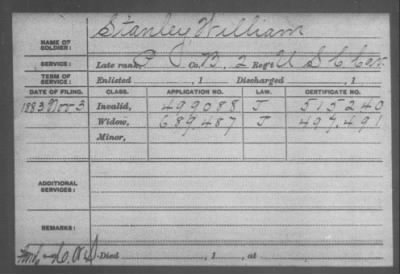 NAME OF SOLDIER: Stanley William
SERVICE: Late rank P, Co. B, 2 Reg't U S C Cav.
TERM OF SERVICE: Enlisted , 1 Discharged , 1
DATE OF FILING. CLASS. APPLICATION NO. LAW. CERTIFICATE NO.
1883 Nov 3 Invalid, 499088 J 515240
Widow, 689.487 J 497.491
Minor,
ADDITIONAL SERVICES:
REMARKS:
Died , 1 , at